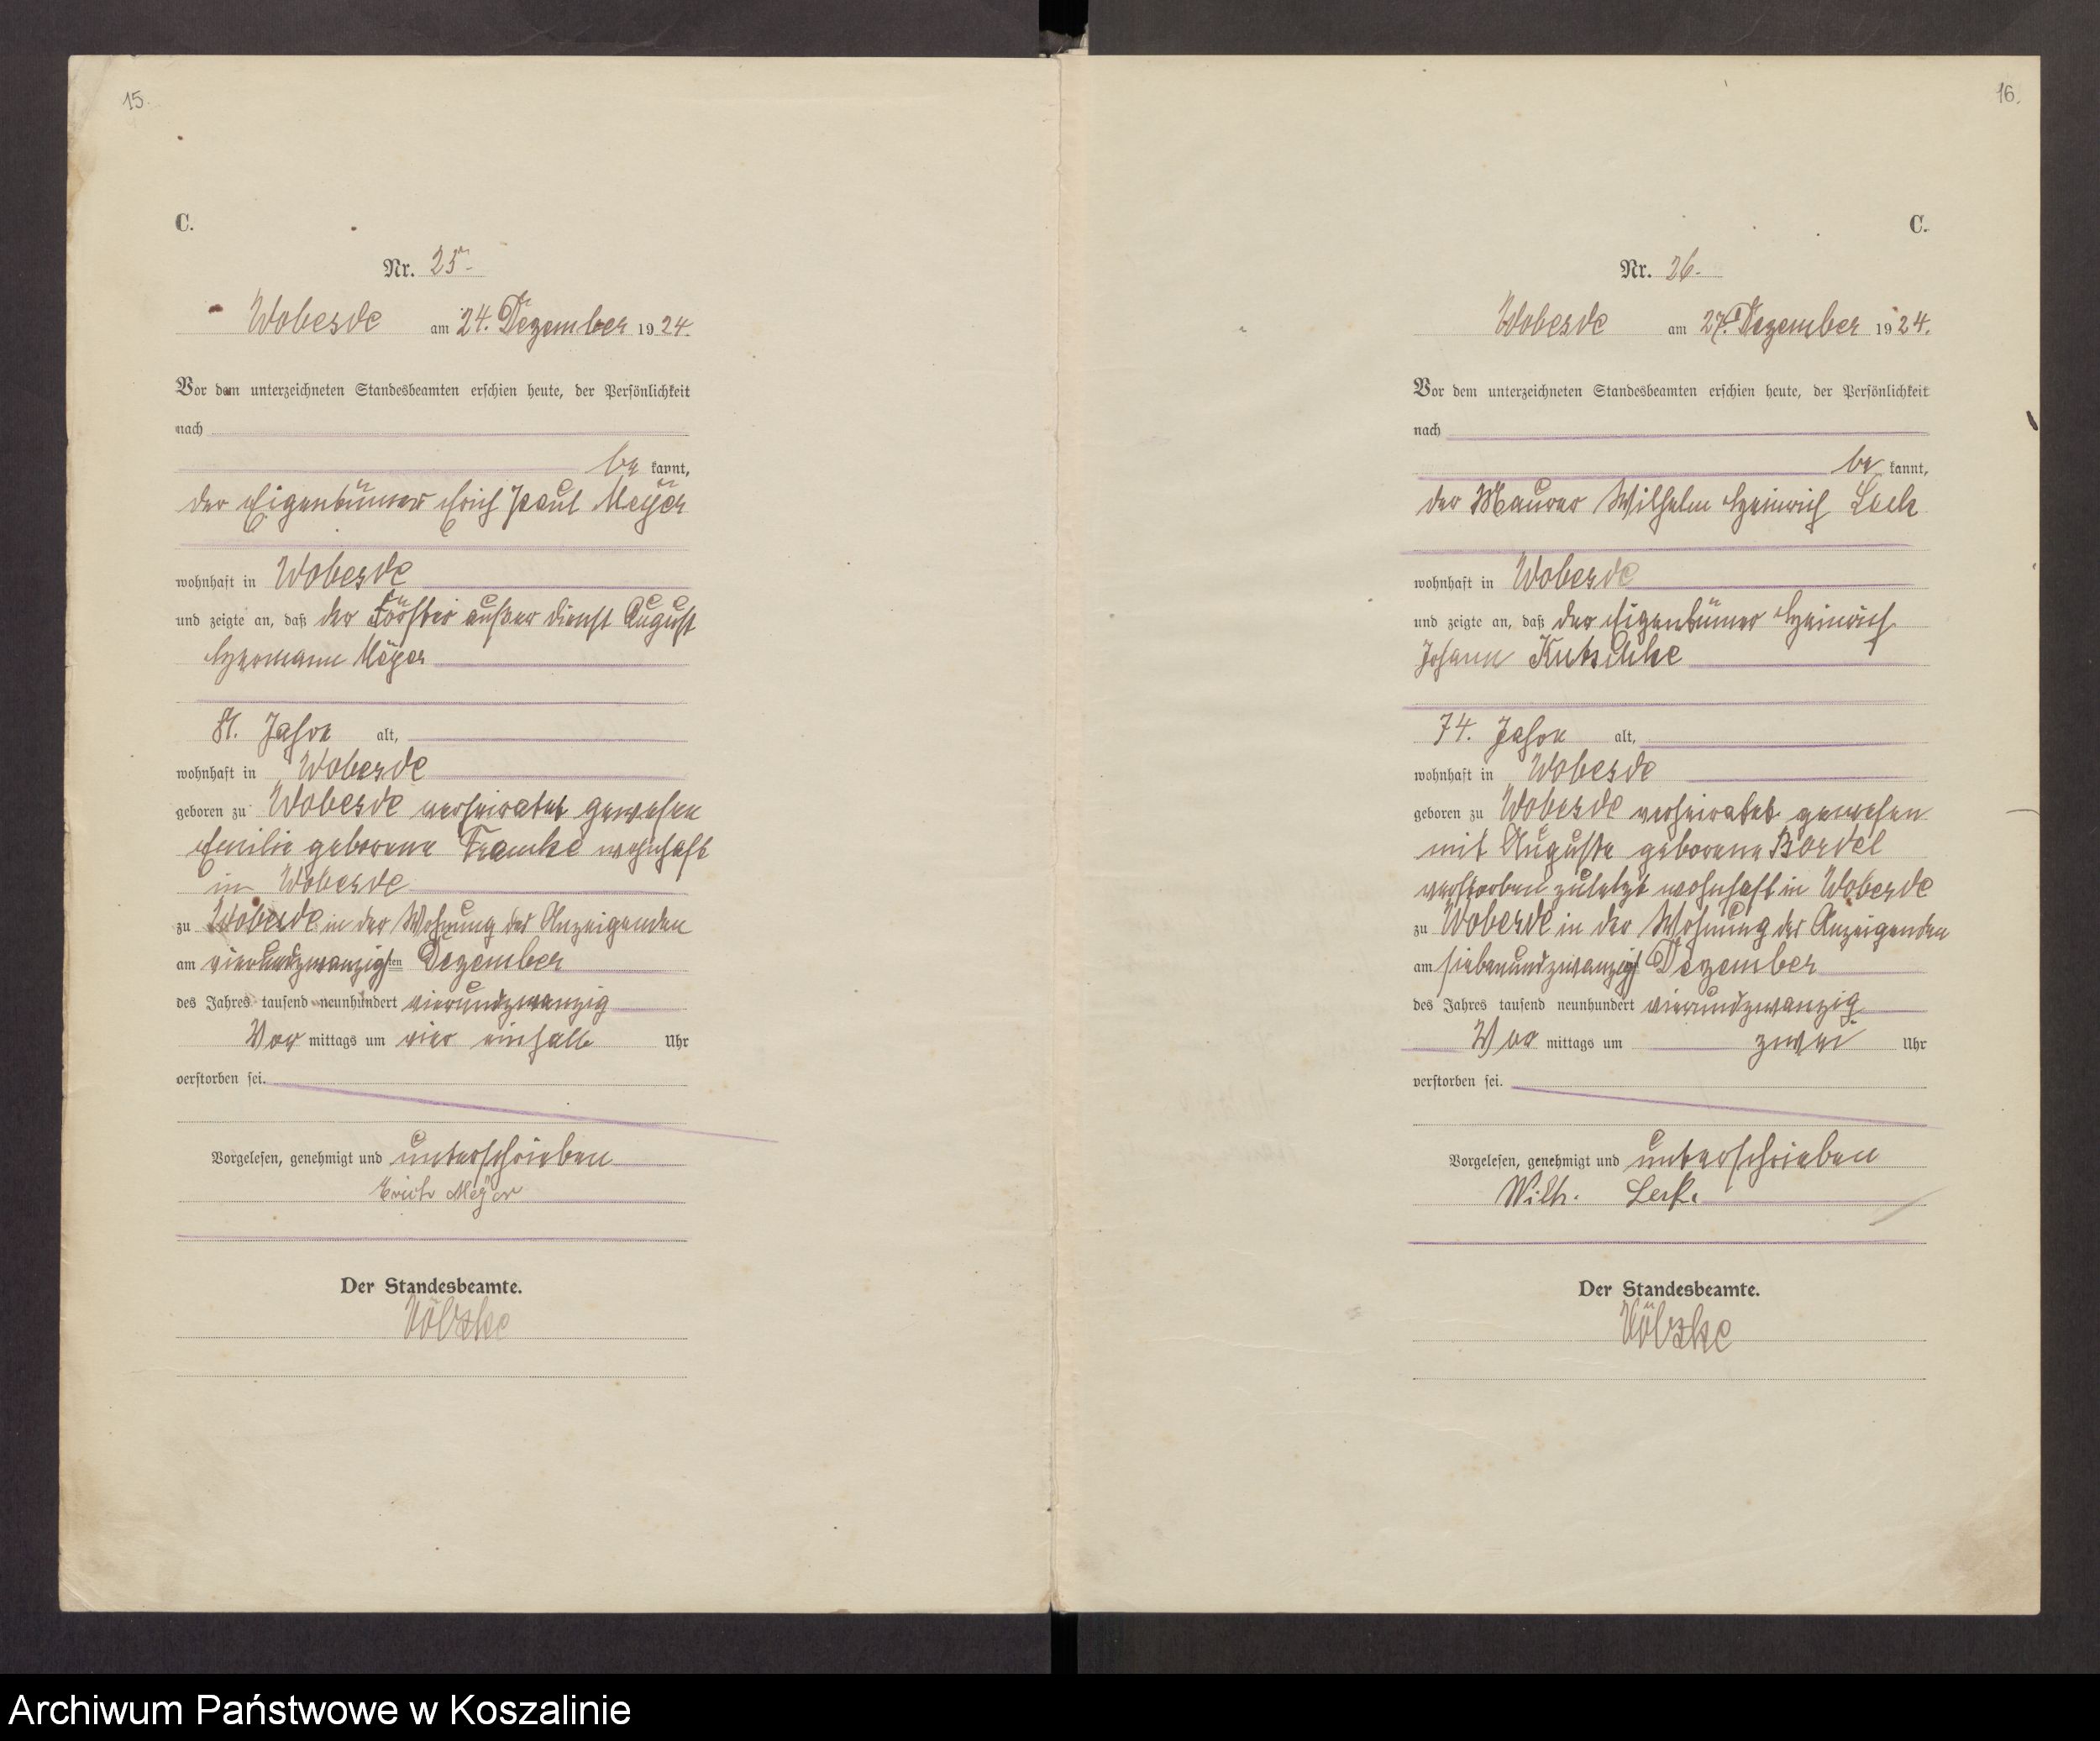 15.
C.
Nr. 25.
Wobesde am 24. Dezember 1924.
Vor dem unterzeichneten Standesbeamten erschien heute, der Persönlichkeit
nach
be kannt,
der Eigentümer Erich Paul Meÿer
wohnhaft in Wobesde
und zeigte an, daß der Förster außer dienst August
Hermann Meÿer
81. Jahre alt,
wohnhaft in Wobesde
geboren zu Wobesde verheiratet gewesen
Emilie geborene Francke wohnhaft
in Wobesde
zu Wobesde in der Wohnung des Anzeigenden
am vierundzwanzigsten Dezember
des Jahres tausend neunhundert vierundzwanzig
Vor mittags um vier einhalb Uhr
verstorben sei.
Vorgelesen, genehmigt und unterschrieben
Erich Meÿer
Der Standesbeamte.
Völzke
16.
C.
Nr. 26.
Wobesde am 27. Dezember 1924.
Vor dem unterzeichneten Standesbeamten erschien heute, der Persönlichkeit
nach
be kannt,
der Maurer Wilhelm Heinrich
wohnhaft in Wobesde
und zeigte an, daß der Eigentümer Heinrich
Johann Kutschke
74. Jahre alt,
wohnhaft in Wobesde
geboren zu Wobesde verheiratet gewesen
mit Auguste geborene Bordel
verstorben zuletzt wohnhaft in Wobesde
zu Wobesde in der Wohnung des Anzeigenden
am siebenundzwanzigst Dezember
des Jahres tausend neunhundert vierundzwanzig
Vor mittags um zwei Uhr
verstorben sei.
Vorgelesen, genehmigt und unterschrieben
Wilh.
Der Standesbeamte.
Völzke
Archiwum Państwowe w Koszalinie